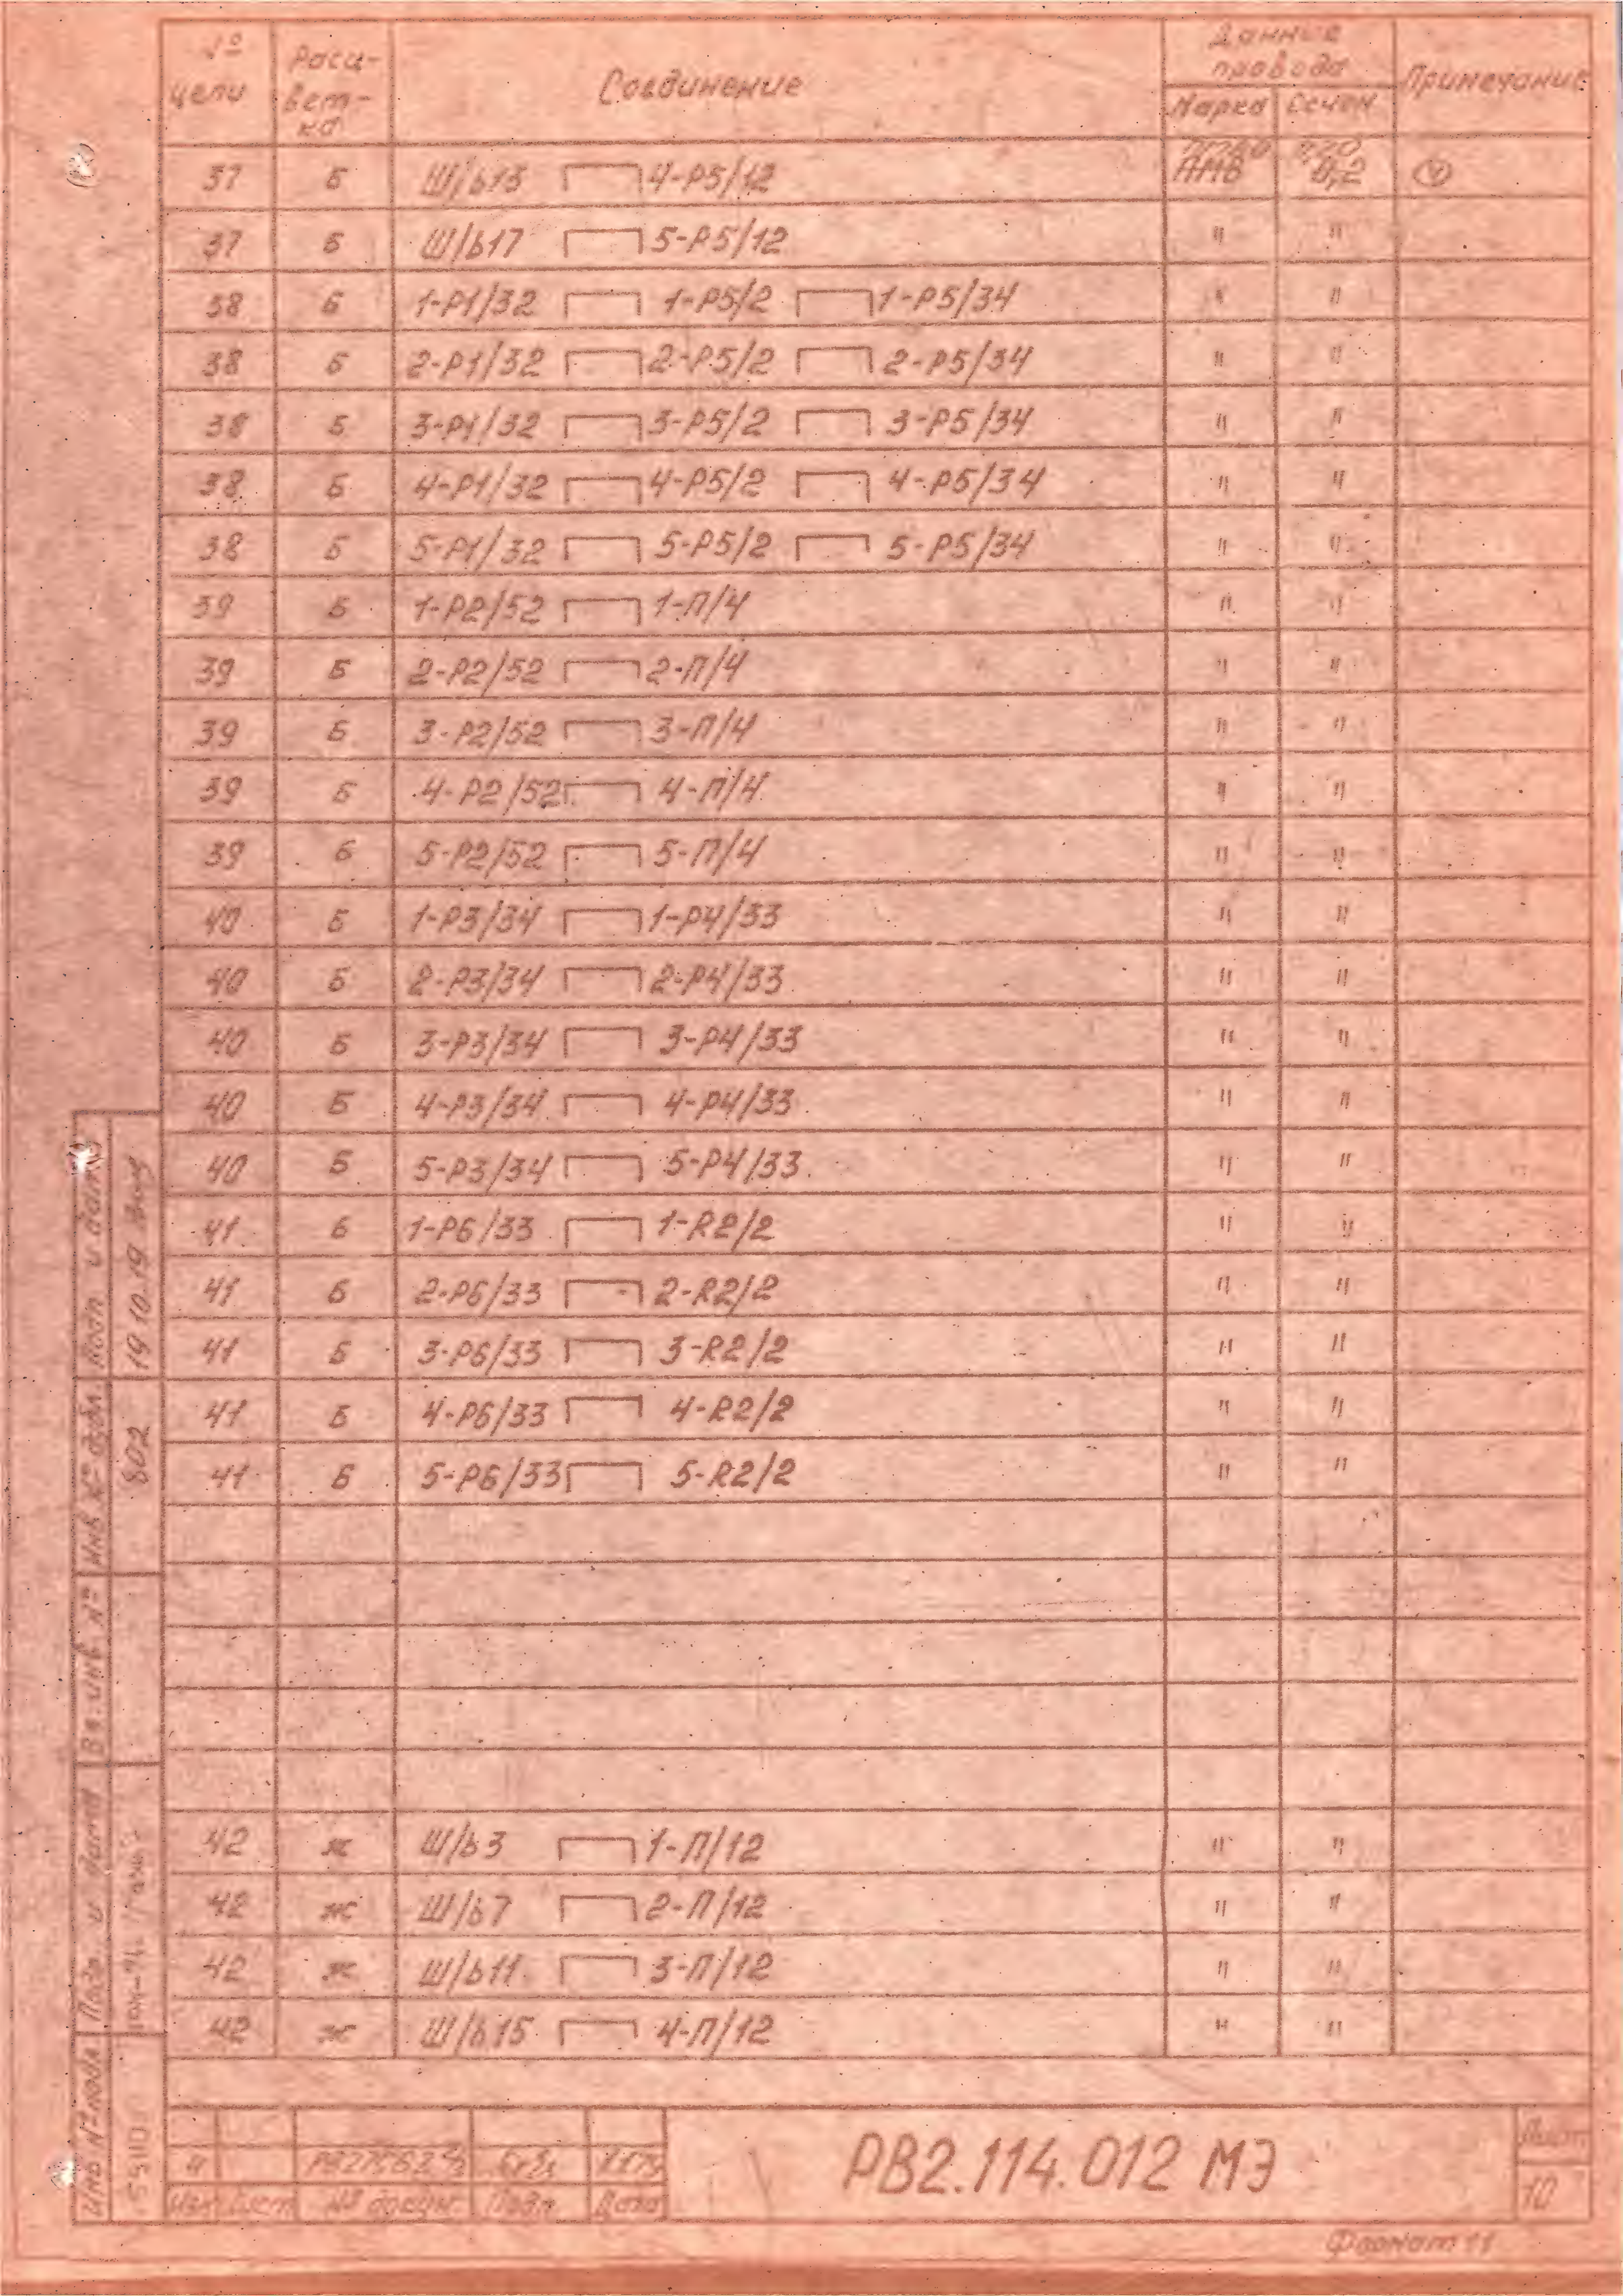 № цепи Расцветка Соединение Данные провода Примечание
Марка Сечен.
37 Б Ш/Б13 4-Р5/12 ПМВ 0,2 4
37 Б Ш/Б17 5-Р5/12 " "
38 Б 1-Р1/32 1-Р5/2 1-Р5/34 " "
38 Б 2-Р1/32 2-Р5/2 2-Р5/34 " "
38 Б 3-Р1/32 3-Р5/2 3-Р5/34 " "
38 Б 4-Р1/32 4-Р5/2 4-Р5/34 " "
38 Б 5-Р1/32 5-Р5/2 5-Р5/34 " "
39 Б 1-Р2/52 1-П/4 " "
39 Б 2-Р2/52 2-П/4 " "
39 Б 3-Р2/52 3-П/4 " "
39 Б 4-Р2/52 4-П/4 " "
39 Б 5-Р2/52 5-П/4 " "
40 Б 1-Р3/34 1-Р4/33 " "
40 Б 2-Р3/34 2-Р4/33 " "
40 Б 3-Р3/34 3-Р4/33 " "
40 Б 4-Р3/34 4-Р4/33 " "
40 Б 5-Р3/34 5-Р4/33 " "
41 Б 1-Р6/33 1-R2/2 " "
41 Б 2-Р6/33 2-R2/2 " "
41 Б 3-Р6/33 3-R2/2 " "
41 Б 4-Р6/33 4-R2/2 " "
41 Б 5-Р6/33 5-R2/2 " "
42 ж Ш/Б3 1-П/12 " "
42 ж Ш/Б7 2-П/12 " "
42 ж Ш/Б11 3-П/12 " "
42 ж Ш/Б15 4-П/12 " "
Подп и дата
19 10.19
Инв № дубл
802
Вз. инв №
Подп. и дата
Инв № подл
55110
4
Изм Лист № докум. Подп. Дата
РВ2.114.012 МЭ
Лист
10
Формат 11